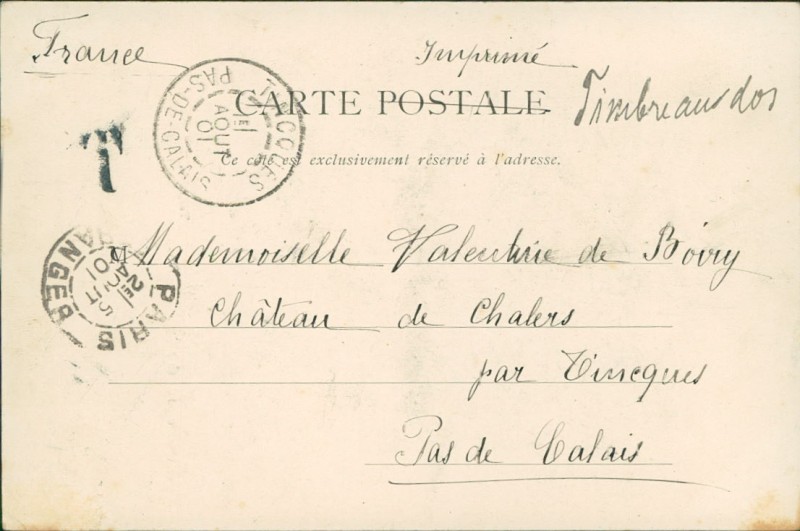 France
Imprimé
Timbre au dos
CARTE POSTALE
Ce côté est exclusivement réservé à l'adresse.
T
TINCQUES
PAS-DE-CALAIS
1E
AOUT
01
PARIS
ETRANGER
2E
5
AOUT
01
M Mademoiselle Valentine de Bovry
Château de Chalers
par Tincques
Pas de Calais